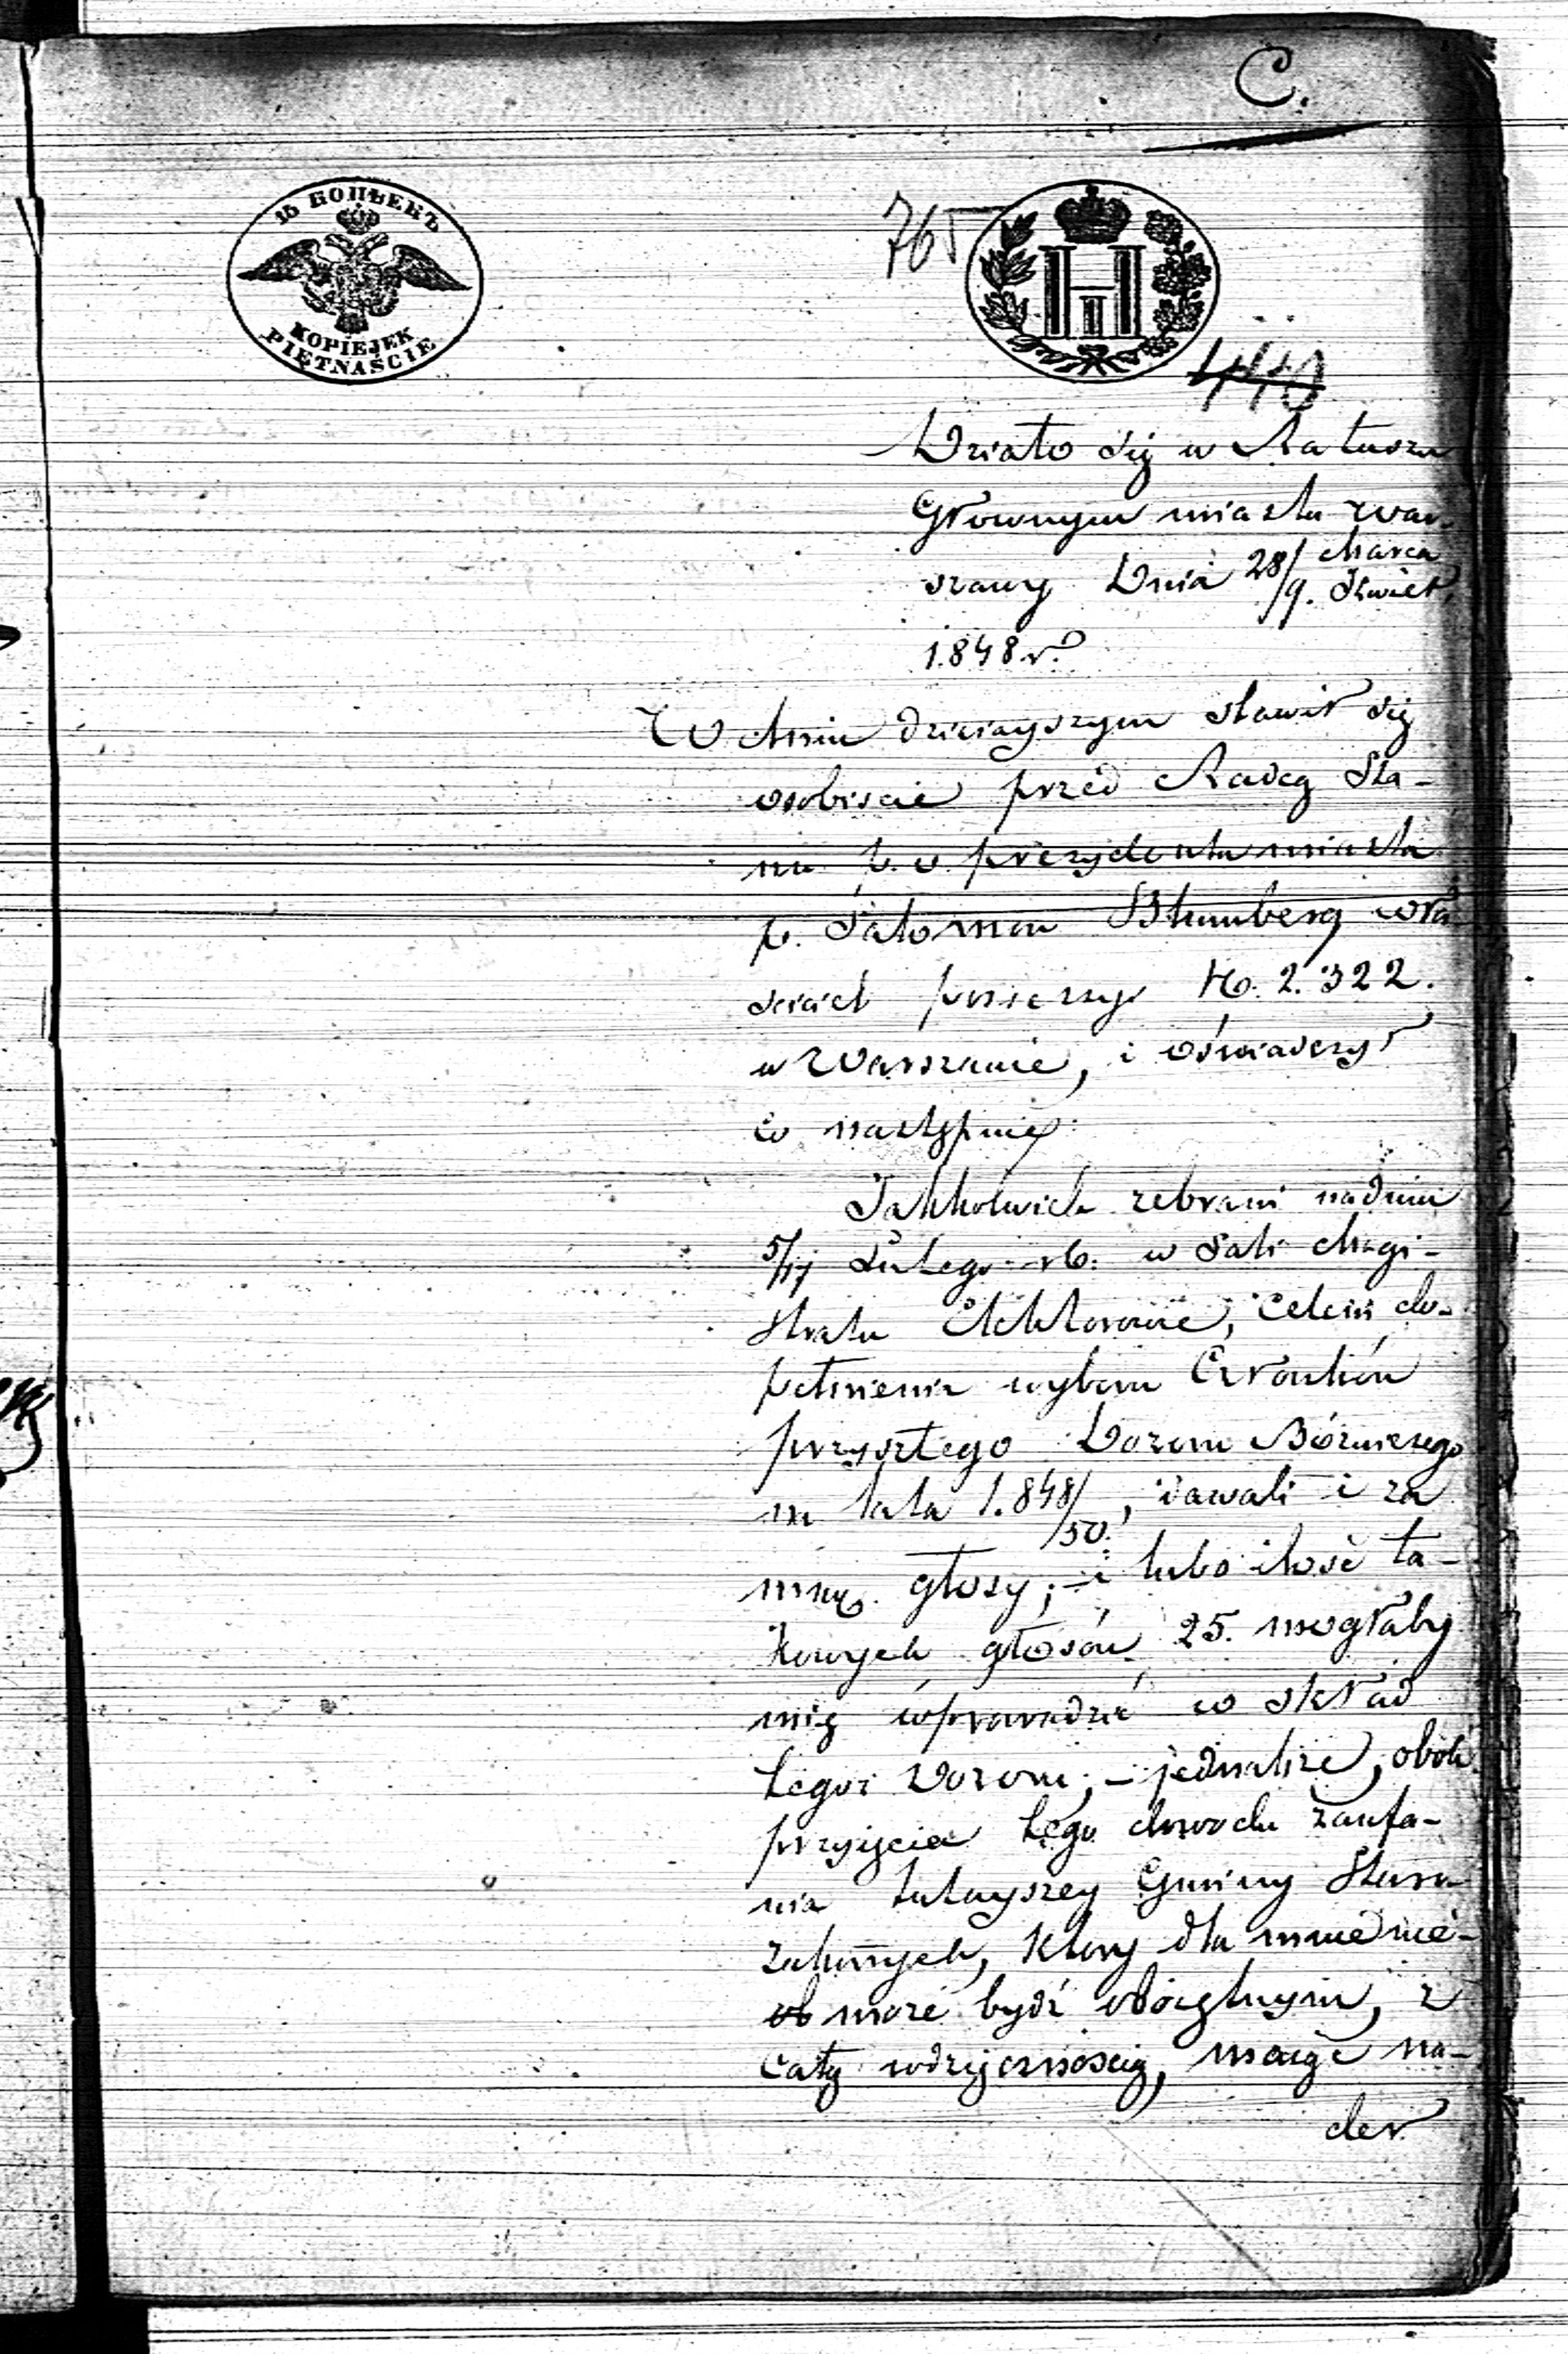 C.
15 КОПѢЕКЪ
KOPIEJEK
PIĘTNAŚCIE
765
440
Działo się w Ratuszu
Głownym miasta War-
szawy Dnia 28/9. Marca Kwiet.
1.848 r.
W dniu dzisiayszym stawił się
osobiscie przed Radcą Sta-
nu p. o. prezydenta miasta
p. Salomon Blumberg wła
sciciel posiessyi No. 2.322.
w Warszawie, i oświadczył
co następuie:
Jakkolwiek zebrani na dniu
5/17 Lutego rb. w Sali Magi-
stratu Elektorowie, celem do-
pełnienia wyboru Członków
przyszłego Dozoru Bóżniczego
na lata 1.848/50., dawali i za
mną głosy; – i lubo ilość ta-
kowych głosów 25. mogłaby
mię wprowadzić w skład
tegoż Dozoru; – jednakże, obok
przyięcia tego dowodu zaufa-
nia tutayszey Gminy Staro-
zakonnych, który dla mnie nie-
może bydź oboiętnym, z
całą wdzięcznością, maiąc na-
der